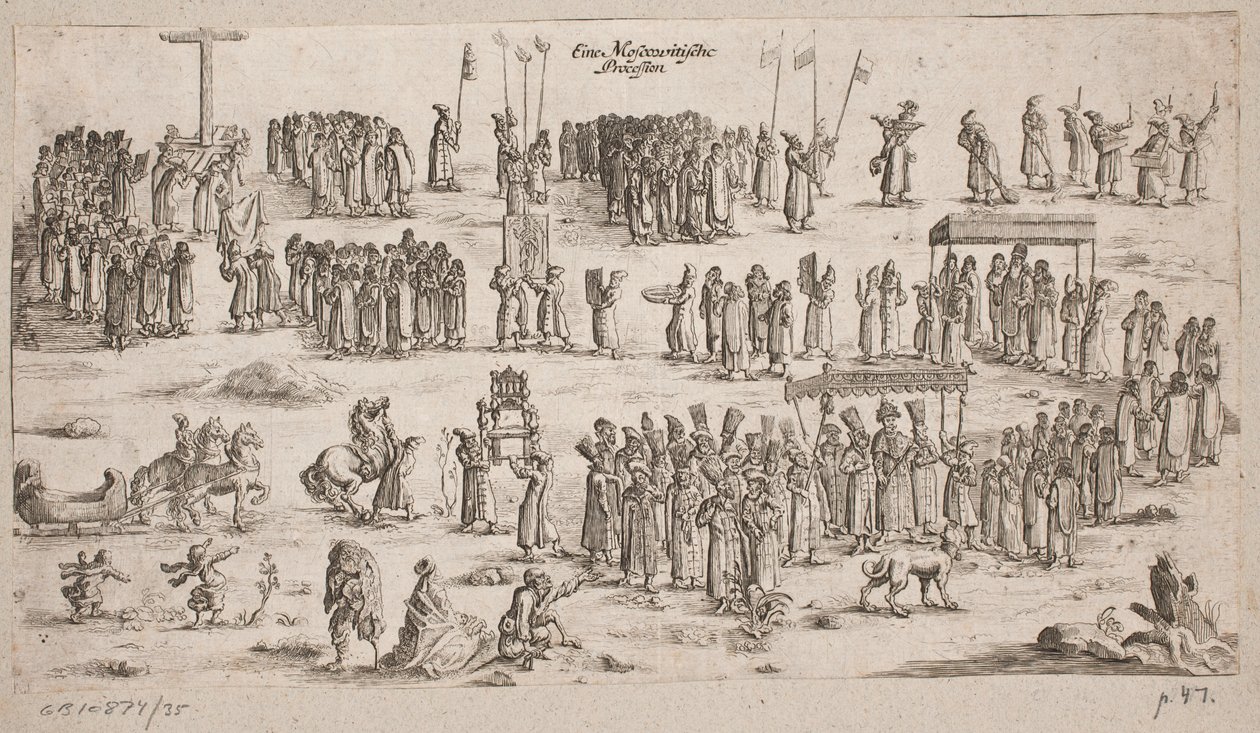 Eine Moscowitische
Procession
GB10874/35
p. 47.